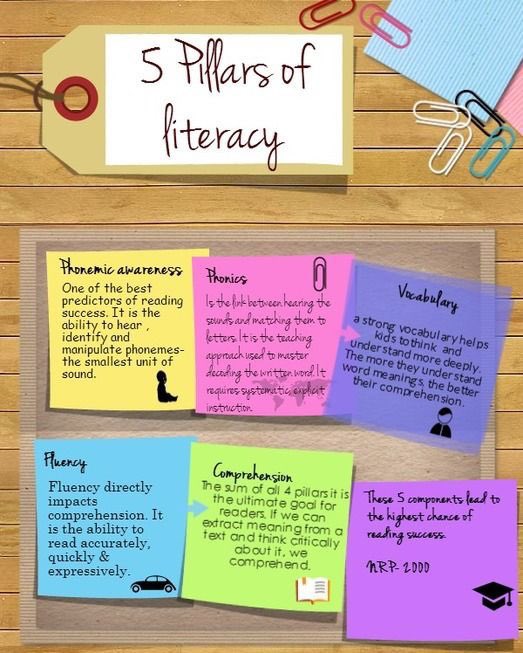 5 Pillars of
literacy
Phonemic awareness
One of the best
predictors of reading
success. It is the
ability to hear ,
identify and
manipulate phonemes-
the smallest unit of
sound.
Phonics
Is the link between hearing the
sounds and matching them to
letters. It is the teaching
approach used to master
decoding the written word. It
requires systematic, explicit
instruction.
Vocabulary
a strong vocabulary helps
kids to think and
understand more deeply.
The more they understand
word meanings, the better
their comprehension.
Fluency
Fluency directly
impacts
comprehension. It
is the ability to
read accurately,
quickly &
expressively.
Comprehension
The sum of all 4 pillars it is
the ultimate goal for
readers. If we can
extract meaning from a
text and think critically
about it, we
comprehend.
These 5 components lead to
the highest chance of
reading success.
NRP- 2000